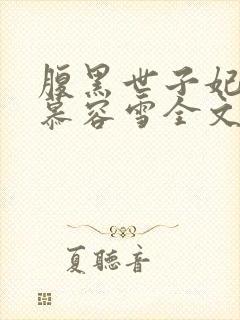 腹黑世子妃
慕容雪全文
夏聽音